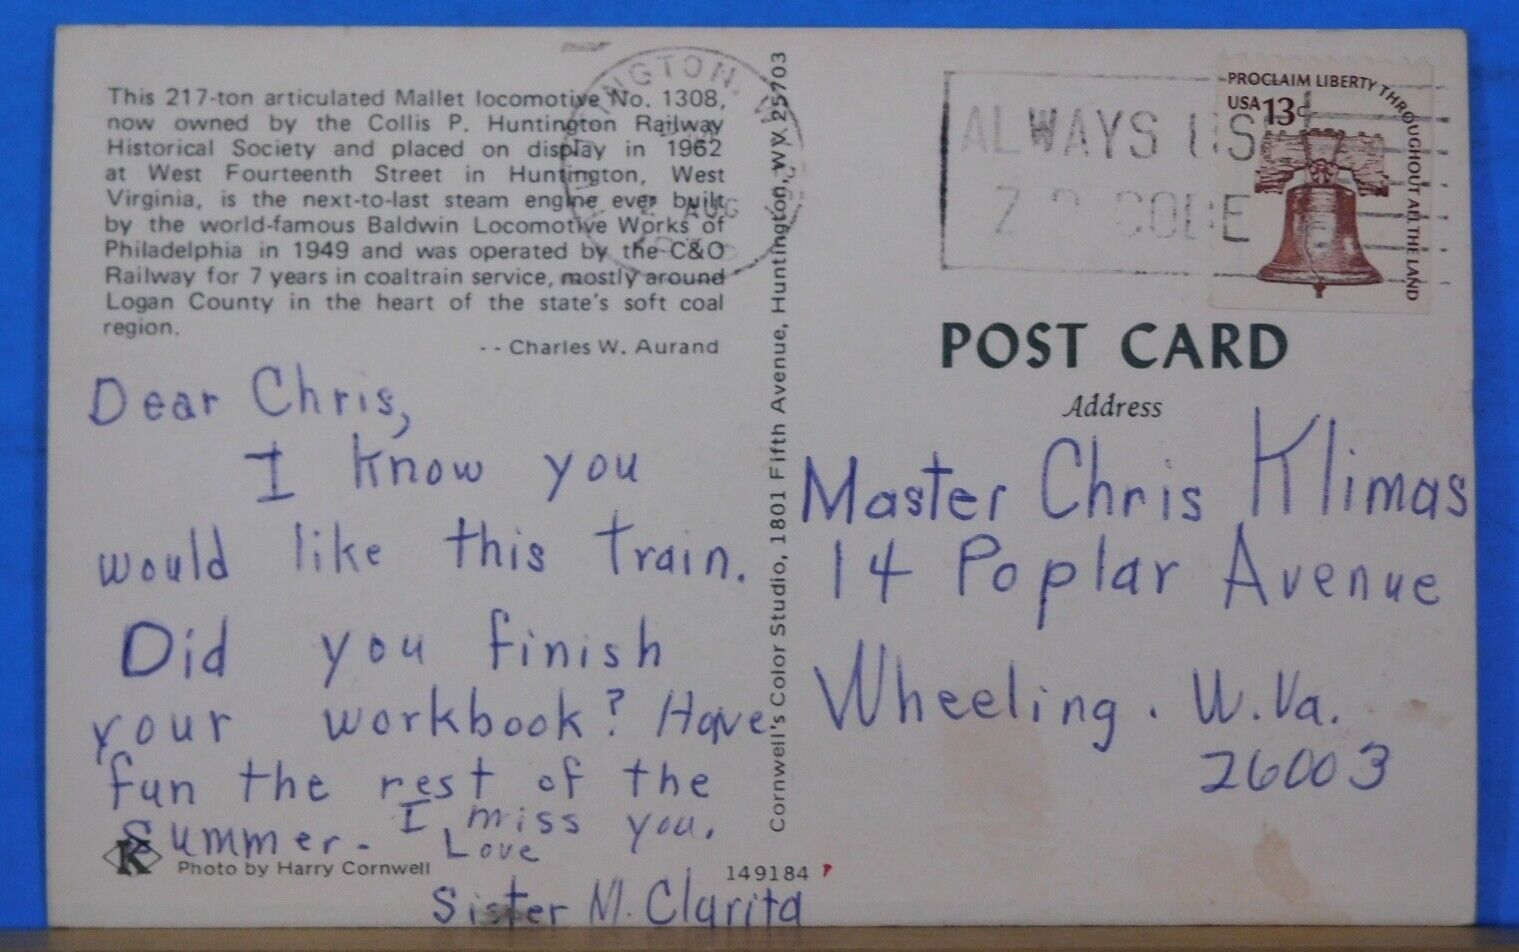 This 217-ton articulated Mallet locomotive No. 1308,
now owned by the Collis P. Huntington Railway
Historical Society and placed on display in 1962
at West Fourteenth Street in Huntington, West
Virginia, is the next-to-last steam engine ever built
by the world-famous Baldwin Locomotive Works of
Philadelphia in 1949 and was operated by the C&O
Railway for 7 years in coaltrain service, mostly around
Logan County in the heart of the state's soft coal
region.
-- Charles W. Aurand
Dear Chris,
I know you
would like this train.
Did you finish
your workbook? Have
fun the rest of the
summer. I miss you.
Love
Sister M. Clarita
K
Photo by Harry Cornwell
149184
Cornwell's Color Studio, 1801 Fifth Avenue, Huntington, WV 25703
AUG
ALWAYS US
CODE
PROCLAIM LIBERTY THROUGHOUT ALL THE LAND
USA 13c
POST CARD
Address
Master Chris Klimas
14 Poplar Avenue
Wheeling. W.Va.
26003